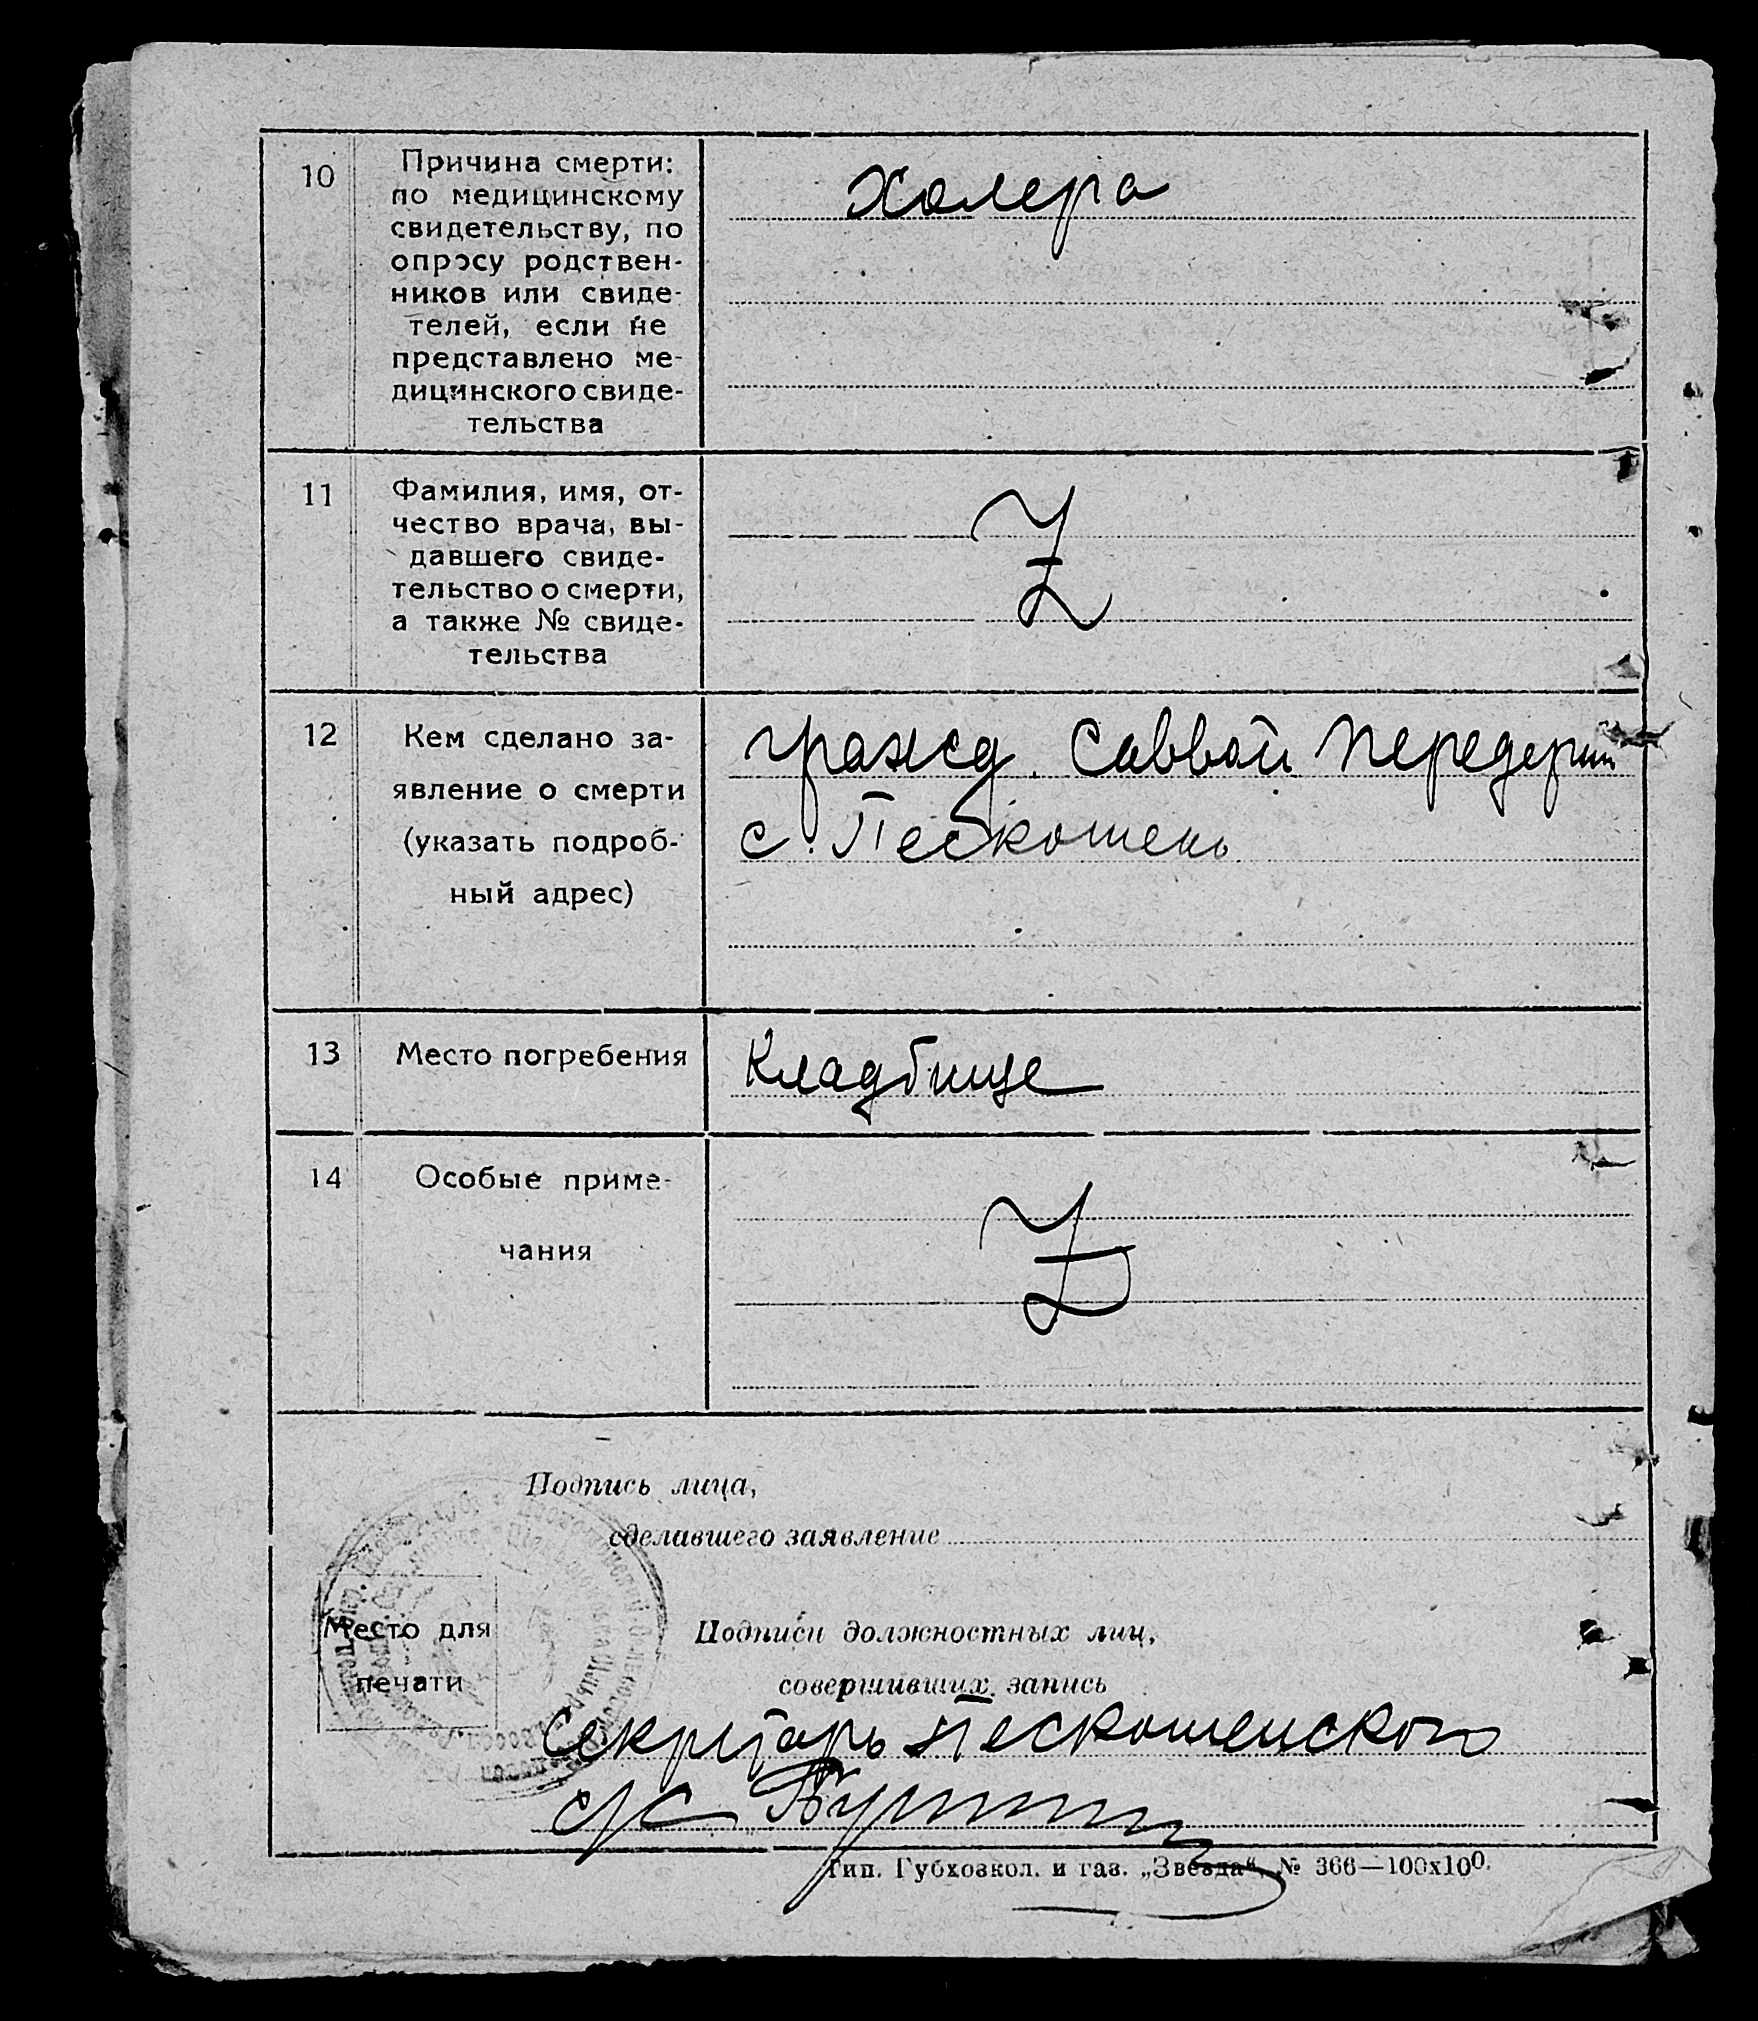 10
Причина смерти:
по медицинскому
свидетельству, по
опросу родствен-
ников или свиде-
телей, если не
представлено ме-
дицинского свиде-
тельства
Холера
11
Фамилия, имя, от-
чество врача, вы-
давшего свиде-
тельство о смерти,
а также № свиде-
тельства
Z
12
Кем сделано за-
явление о смерти
(указать подроб-
ный адрес)
гражд. Саввой Передерий
с. Пескошень
13
Место погребения
Кладбище
14
Особые приме-
чания
Z
Подпись лица,
сделавшего заявление
Место для
печати
Подписи должностных лиц,
совершивших запись
Секретарь Пескошенского
с/с
Тип. Губхозкол. и газ. „Звезда“, № 366—100х100.